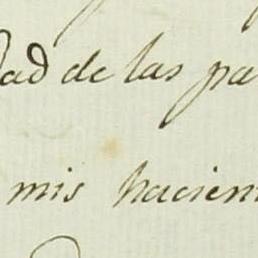 dad de las pa
mis hacien